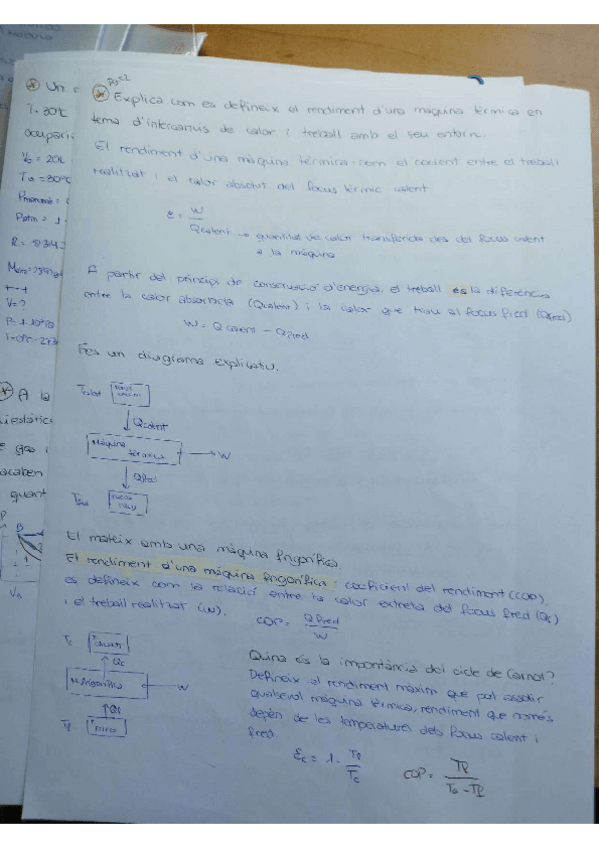 Explica com es defineix el rendiment d'una màquina tèrmica en
tema d'intercanvis de calor i treball amb el seu entorn.
El rendiment d'una màquina tèrmica: com el cocient entre el treball
realitzat i el calor absolut del focus tèrmic calent.
ε = W / Qcalent → quantitat de calor transferida des del focus calent
a la màquina
A partir del principi de conservació d'energia, el treball és la diferència
entre la calor absorbida (Qcalent) i la calor que tornu al focus fred (Qfred)
W = Qcalent - Qfred
Fes un diagrama explicatiu.
Tcalent
focus
Qcalent
Màquina
tèrmica → W
Qfred
focus
fred
El mateix amb una màquina frigorífica.
El rendiment d'una màquina frigorífica: coeficient del rendiment (COP),
es defineix com la relació entre la calor extreta del focus fred
i el treball realitzat (W). COP = Qfred / W
Tc
Qc
M. frigorífica W
Qf
Tf
Quina és la importància del cicle de Carnot?
Defineix el rendiment màxim que pot assolir
qualsevol màquina tèrmica, rendiment que només
depèn de les temperatures dels focus calent i
fred.
εc = 1 - Tf / Tc
COP = Tf / Tc - Tf
Un
ocupari
V₀ = 20L
T₀ = 30ºC
Patm = 1
V = ?
A la
e gas
acaben
quant
B
1
V₀